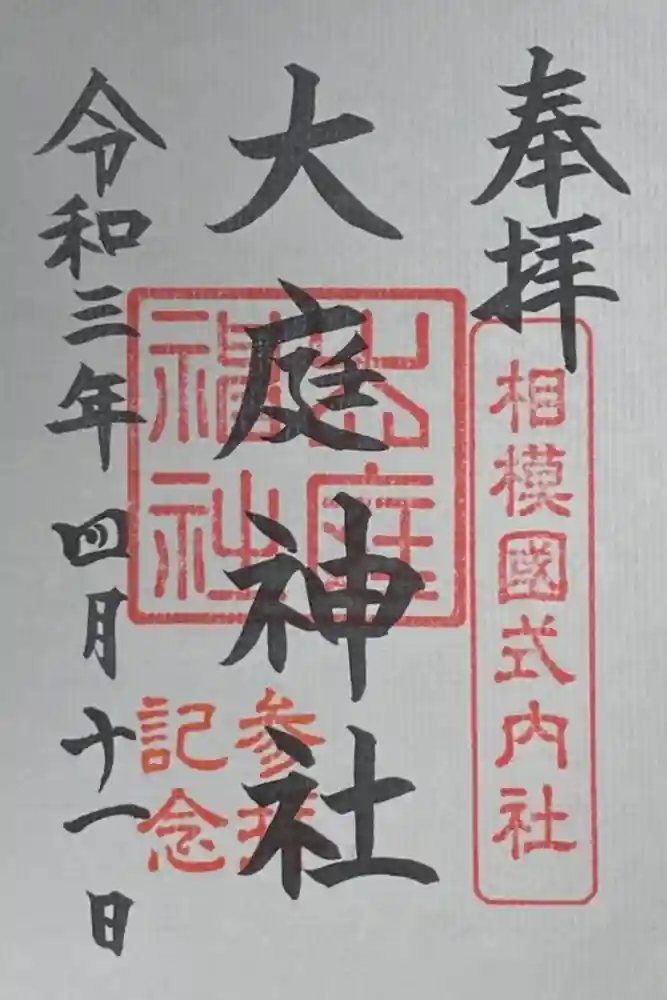 奉拝
相模國式内社
大庭神社
大庭
神社
参拝
記念
令和三年四月十一日